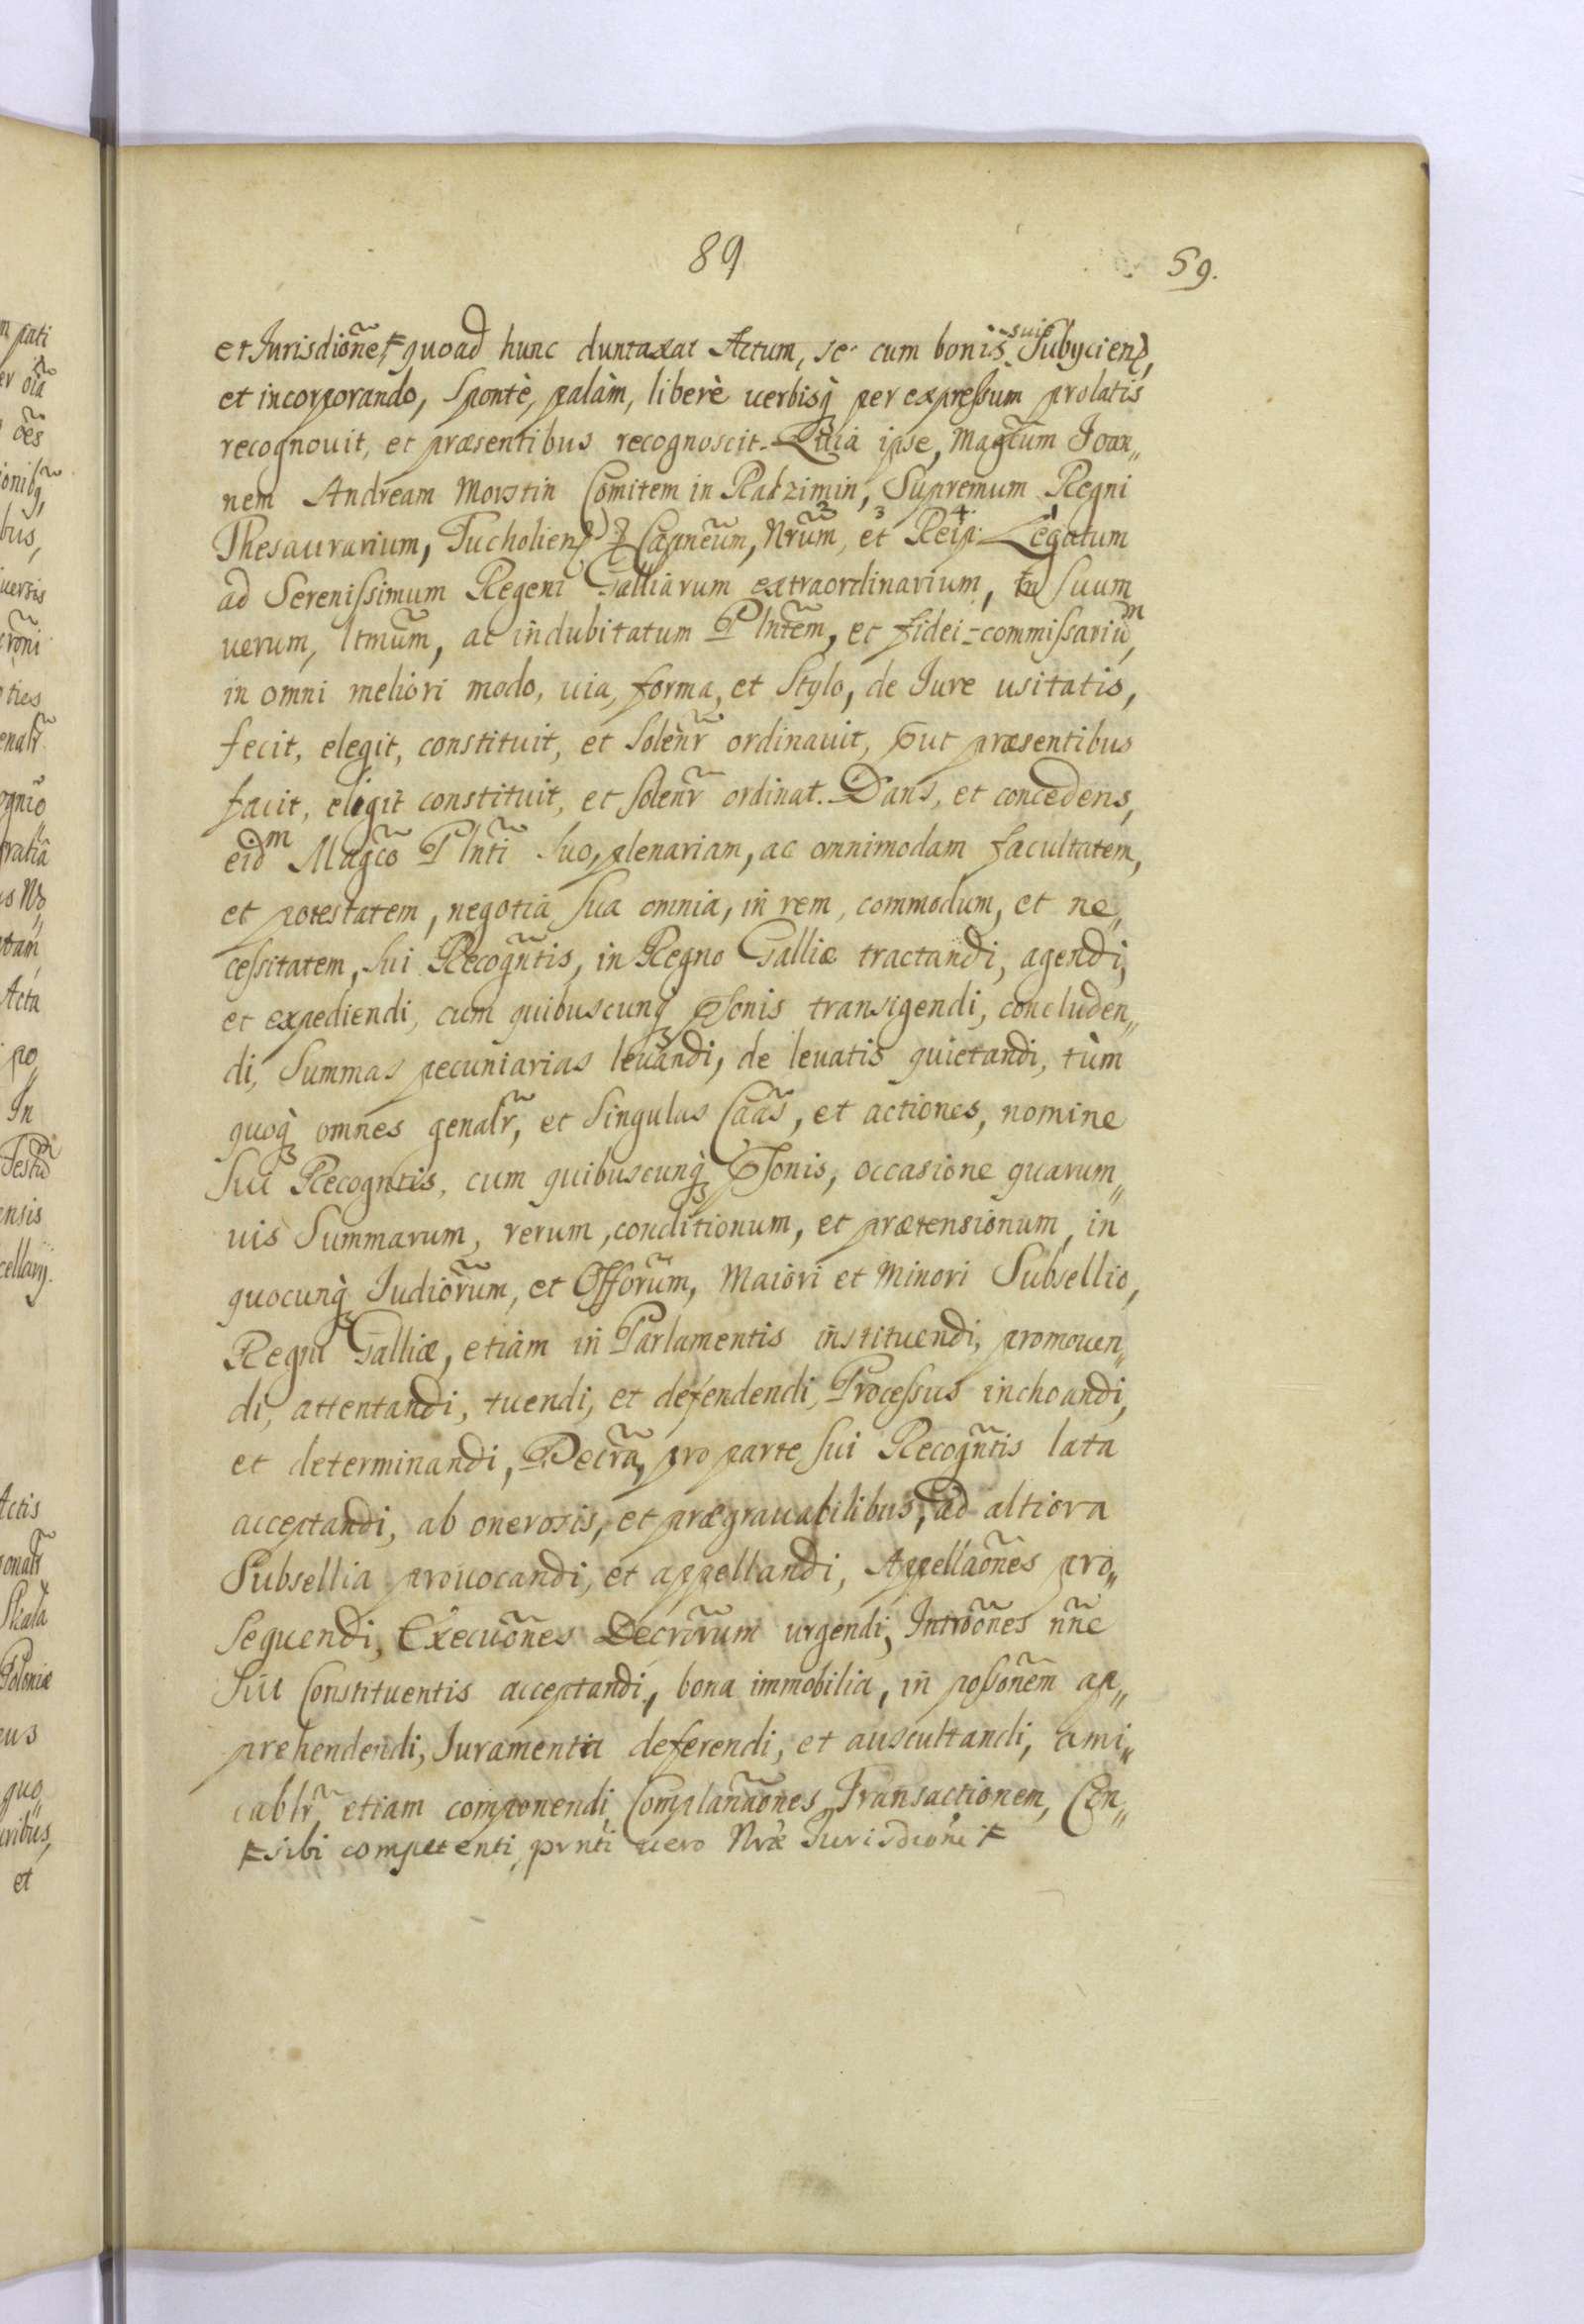 89
59.
et Jurisdioñe, ⌿ quoad hunc duntaxat Actum, se cum bonis suis Subyciend,
et incorporando, Spontè, palàm, liberè uerbisq̀ per expressum prolatis
recognouit, et præsentibus recognoscit. Quia ipse, Magcum Joan„
nem Andream Morstin Comitem in Radzimin, Supremum Regni
Thesaurarium, Tucholien Capneum, Nrum, et Reip: Legatum
ad Serenissimum Regem Galliarum extraordinarium, in Suum
uerum, ltmum, ac indubitatum Plntem, et fidei-commissariũm,
in omni meliori modo, uia, forma, et Stylo, de Jure usitatis,
fecit, elegit, constituit, et Solenr̃ ordinauit, put præsentibus
facit, eligit constituit, et Solenr̃ ordinat. Dans, et concedens,
eidm Magc̃o Plnti Suo, plenariam, ac omnimodam facultatem,
et potestatem, negotia Sua omnia, in rem, commodum, et ne„
cessitatem, Sui Recogñtis, in Regno Galliæ tractandi, agendi,
et expediendi, cum quibuscunq̀ Psonis transigendi, concluden„
di, Summas pecuniarias leuandi, de leuatis quietandi, tùm
quoq̀ omnes genalr̃, et Singulas Caãs, et actiones, nomine
Sui Recogntis, cum quibuscunq̀ Psonis, occasione quarum„
uis Summarum, rerum, conditionum, et prætensionum, in
quocunq̀ Judiorũm, et Offorũm, Maiori et Minori Subsellio,
Regni Galliæ, etiam in Parlamentis instituendi, promouen„
di, attentandi, tuendi, et defendendi, Processus inchoandi,
et determinandi, Decrã, pro parte Sui Recogñtis lata
acceptandi, ab onerosis, et prægrauabilibus, ad altiora
Subsellia prouocandi, et appellandi, Appellaoñes pro„
Sequendi, Execuoñes Decrorũm urgendi, Introoñes nñe
Sui Constituentis acceptandi, bona immobilia, in possonẽm ap„
prehendendi, Juramentia deferendi, et auscultandi, ami„
cablr̃ etiam componendi Complanaoñes, Transactionem, Con„
⌿ sibi competenti, prnti uero Nræ Jurisdioni ⌿